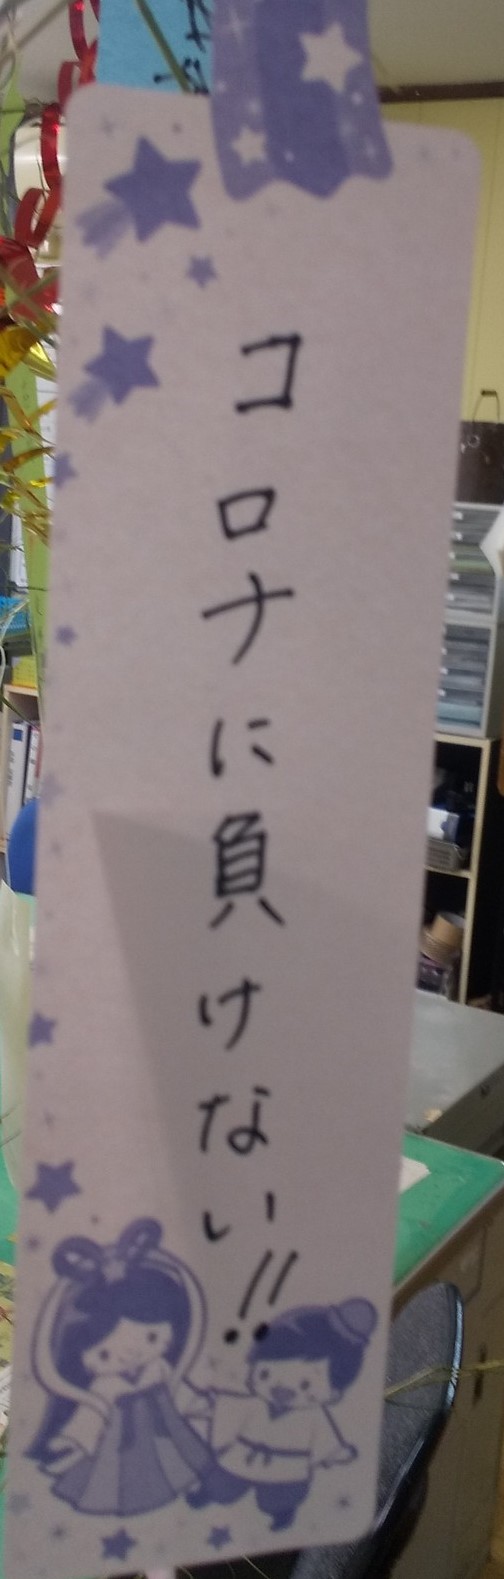 コロナに負けない!!